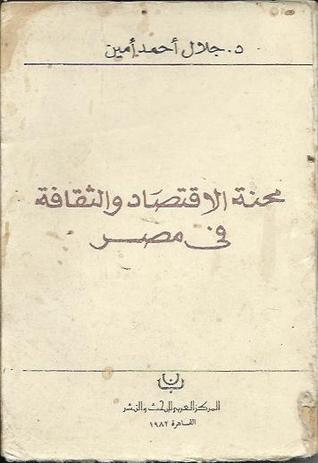 د. جلال أحمد أمين
محنة الاقتصاد والثقافة
فى مصر
المركز العربى للبحث والنشر
القاهرة ١٩٨٢